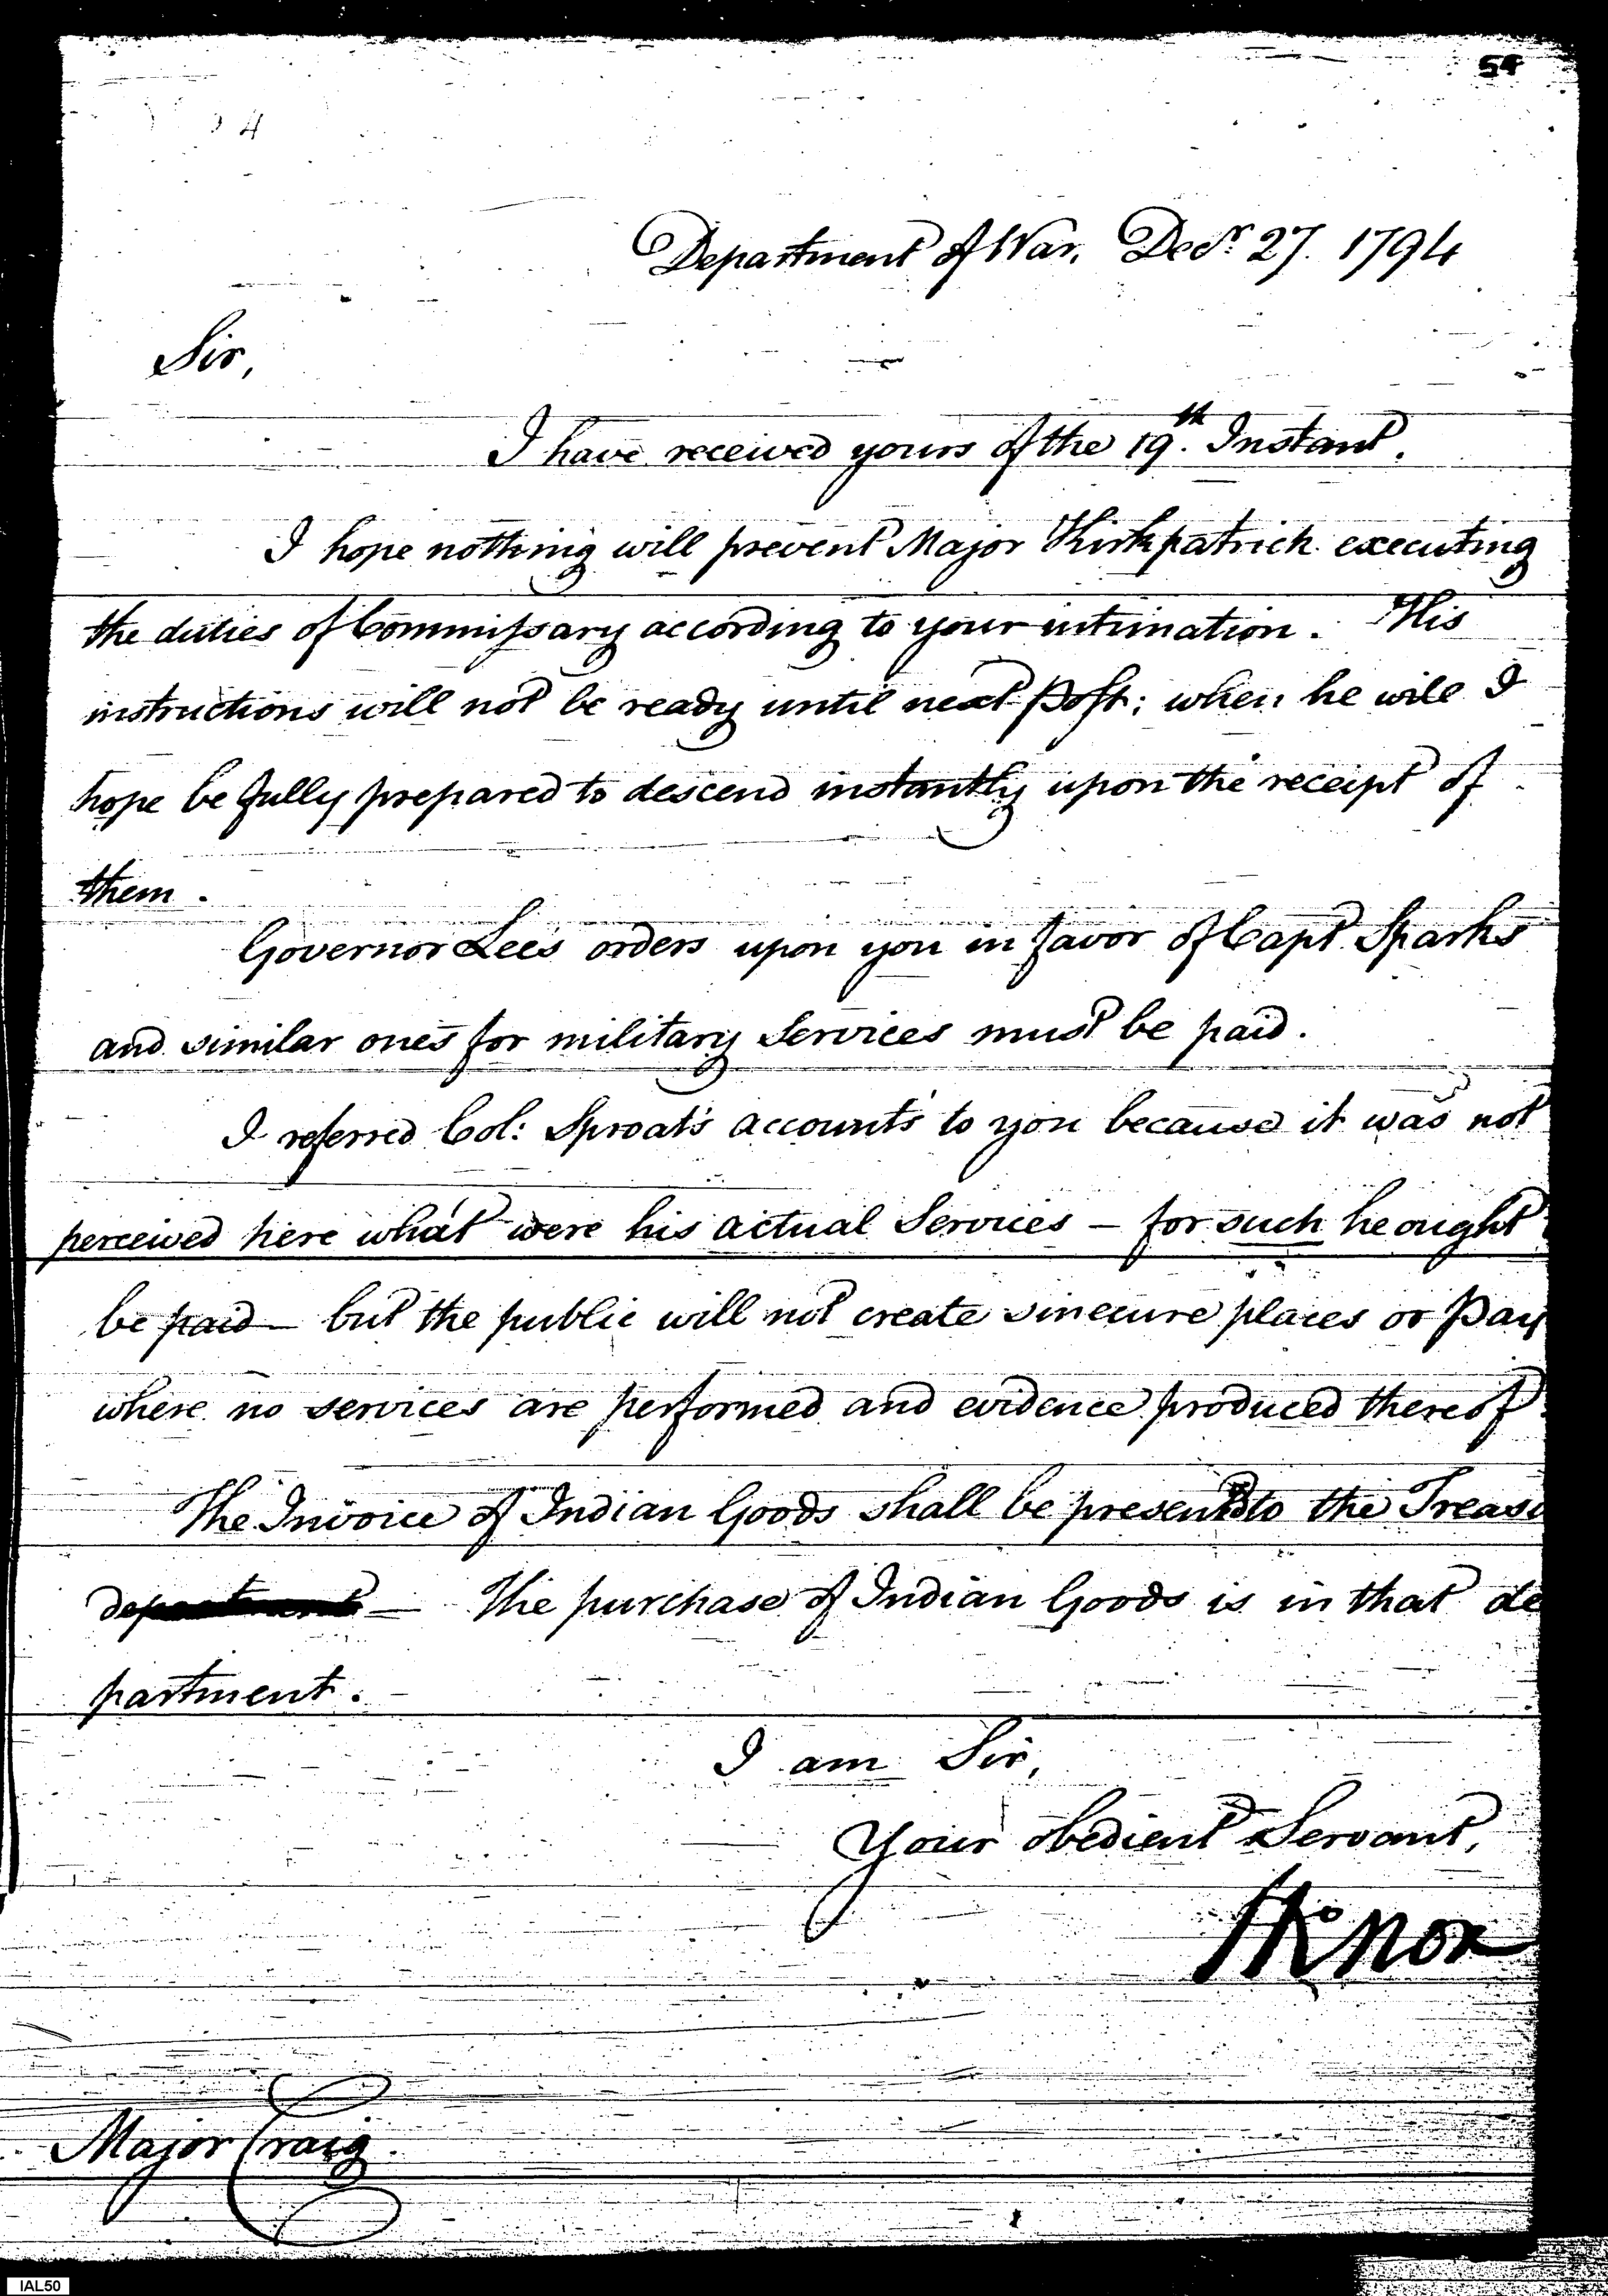 54
4
Department of War, Decr. 27. 1794
Sir,
I have received yours of the 19th. Instant.
I hope nothing will prevent Major Kirkpatrick executing
the duties of Commissary according to your intimation. His
instructions will not be ready until next post; when he will I
hope be fully prepared to descend instantly upon the receipt of
them.
Governor Lee's orders upon you in favor of Capt. Sparks
and similar ones for military Services must be paid.
I referred Col: Sproat's accounts to you because it was not
perceived here what were his actual Services – for such he ought
be paid – but the public will not create sinecure places or Pay
where no services are performed and evidence produced thereof
The Invoice of Indian Goods shall be presented to the Treasu
department – The purchase of Indian Goods is in that de
partment.
I am Sir,
Your obedient Servant,
HKnox
Major Craig.
IAL50